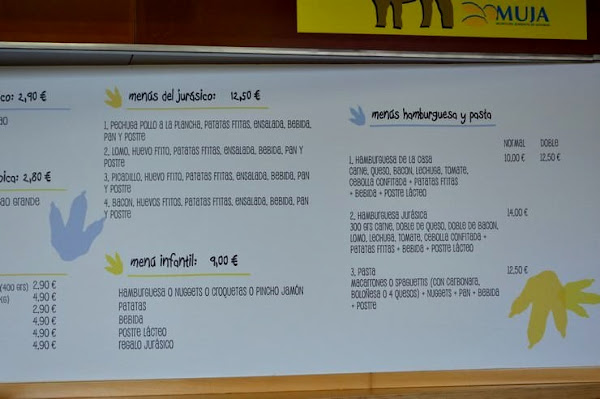 MUJA
co: 2,90 €
ao
ica: 2,80 €
ao grande
(400 grs) 2,90 €
kg) 4,90 €
2,90 €
4,90 €
4,90 €
4,90 €
menús del jurásico: 12,50 €
1. Pechuga pollo a la plancha, patatas fritas, ensalada, bebida,
pan y postre
2. Lomo, huevo frito, patatas fritas, ensalada, bebida, pan y
postre
3. Picadillo, huevo frito, patatas fritas, ensalada, bebida, pan
y postre
4. Bacon, huevos fritos, patatas fritas, ensalada, bebida, pan
y postre
menú infantil: 9,00 €
Hamburguesa o nuggets o croquetas o pincho jamón
Patatas
Bebida
Postre lácteo
Regalo jurásico
menús hamburguesa y pasta
normal doble
1. Hamburguesa de la casa 10,00 € 12,50 €
Carne, queso, bacon, lechuga, tomate,
cebolla confitada + patatas fritas
+ bebida + postre lácteo
2. Hamburguesa jurásica 14,00 €
300 grs carne, doble de queso, doble de bacon,
lomo, lechuga, tomate, cebolla confitada +
patatas fritas + bebida + postre lácteo
3. Pasta 12,50 €
Macarrones o spaguettis (con carbonara,
boloñesa o 4 quesos) + nuggets + pan + bebida
+ postre